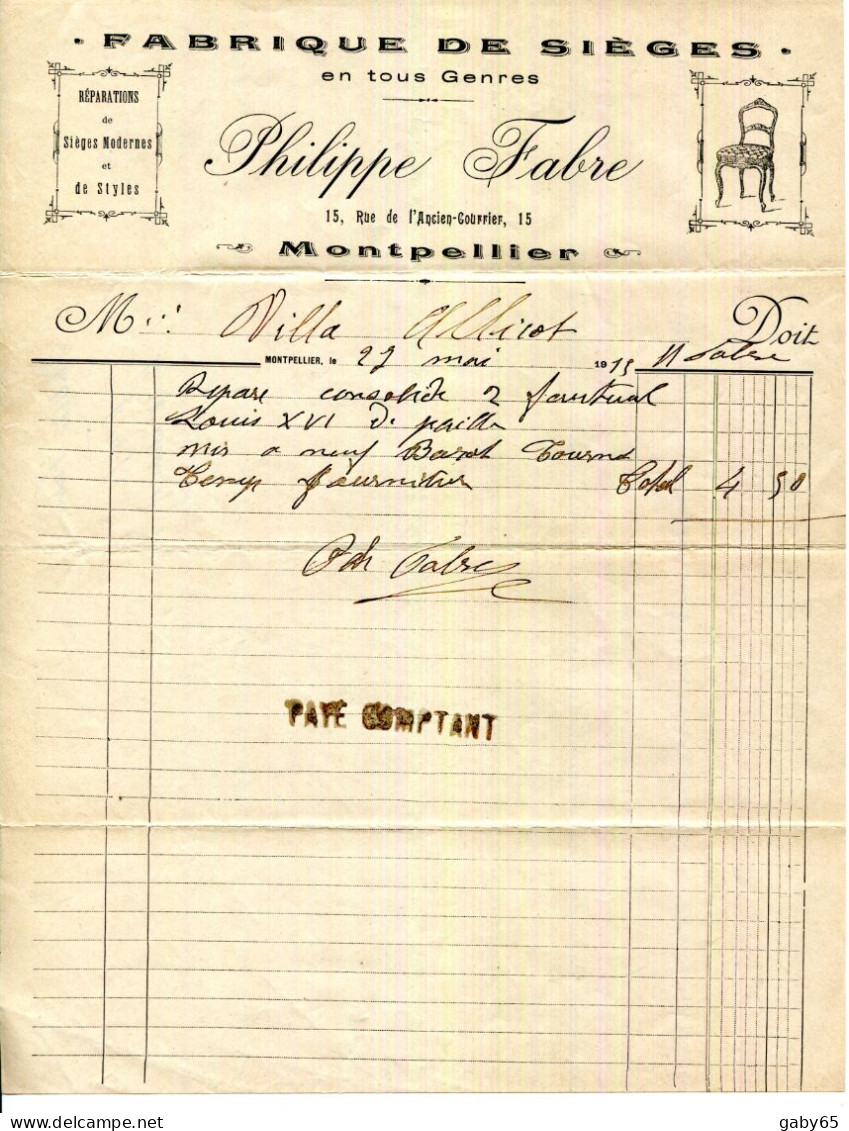 · FABRIQUE DE SIÈGES ·
en tous Genres
RÉPARATIONS
de
Sièges Modernes
et
de Styles
Philippe Fabre
15, Rue de l'Ancien-Courrier, 15
Montpellier
M Villa Doit
MONTPELLIER, le mai 19 Fabre
Repare consolide 2 fauteuil
Louis XVI de paille
mis a neuf Tourné
fourniture Total 4 50
Ph Fabre
PAYÉ COMPTANT
gaby65